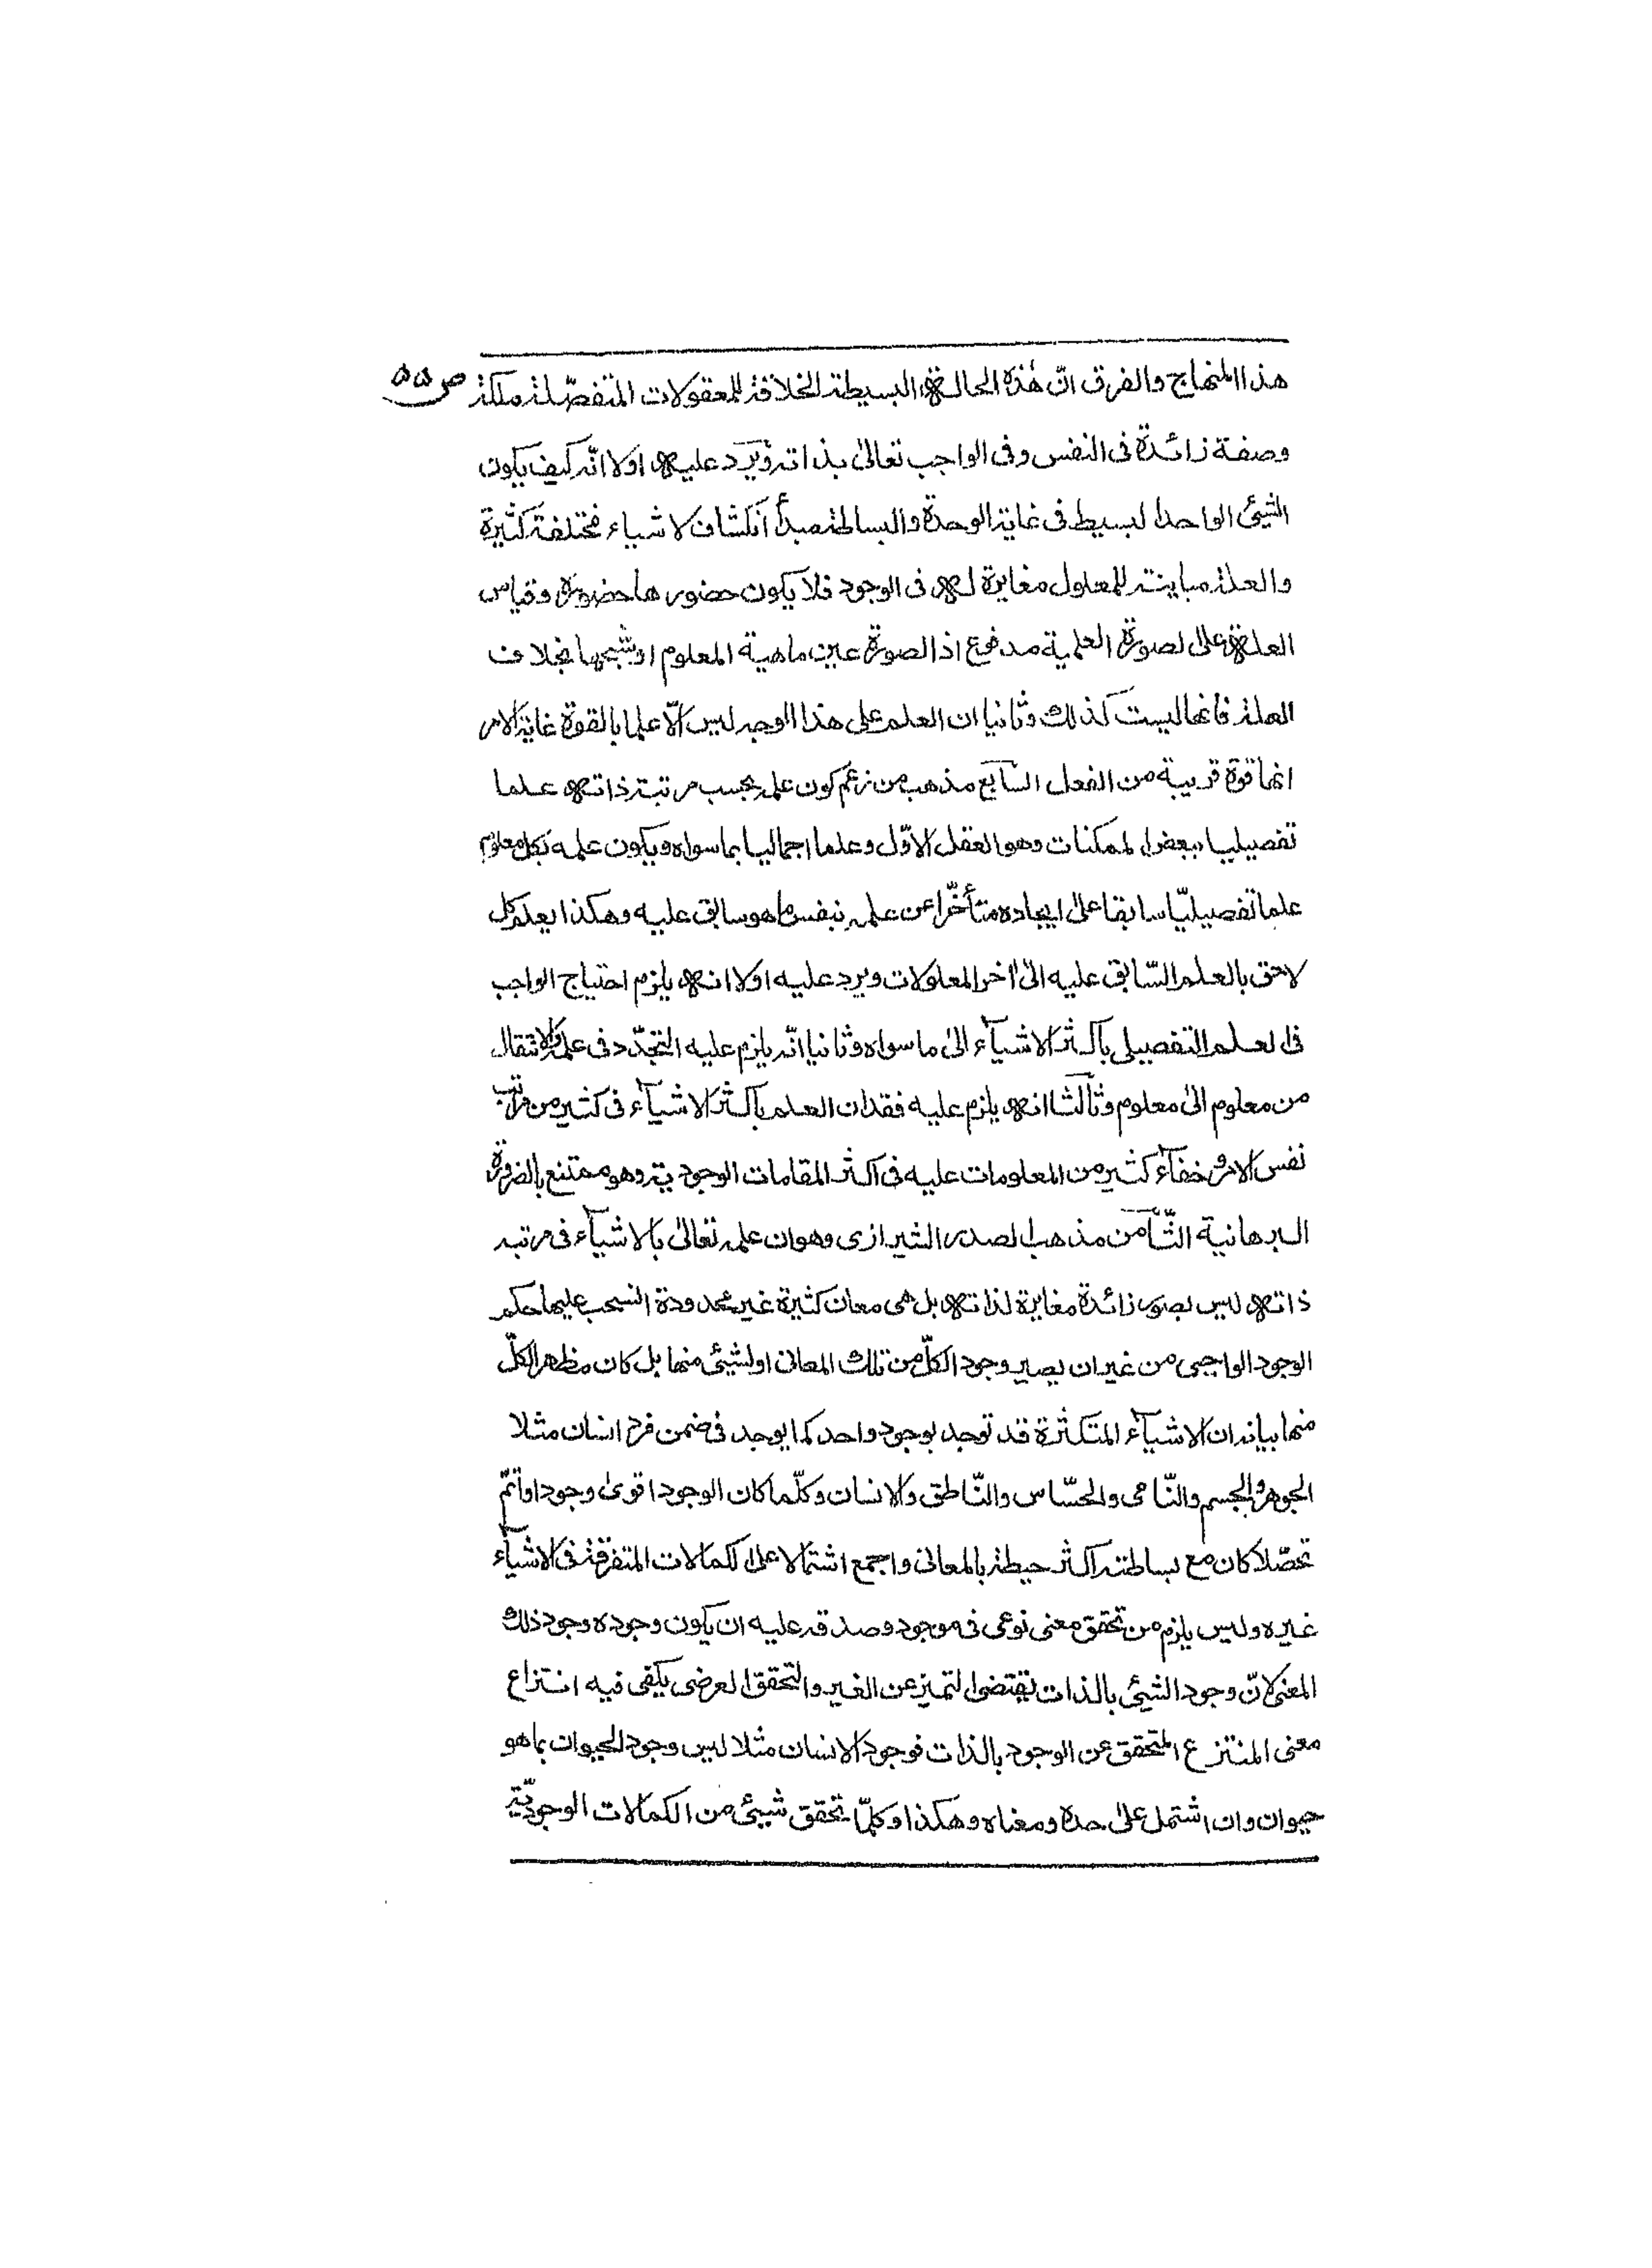 هذا المنهاج والفرق انّ هٰذه الحالة البسيطة الخلاقة للمعقولات المتفصّلة ملكة ص۵۵
وصفة زائدة فى النفس وفى الواجب تعالىٰ بذاته وَيَرد عليه اولا انّه كيف يكون
الشيئ الواحد البسيط فى غاية الوحدة والبساطة مبدأ أنكشاف لاشياء مختلفة كثيرة
والعلة مباينة للمعلول مغايرة له فى الوجود فلا يكون حضورها حضوره وقياس
العلة على الصورة العلمية مدفوع اذ الصورة عين ماهية المعلوم او شبحها بخلاف
العلة فأنها ليست كذلك وثانيا ان العلم على هذا الوجه ليس الّا علما بالقوة غاية الامر
انها قوة قريبة من الفعل السابع مذهب من زعم كون علمه بحسب مرتبة ذاته علما
تفصيليا ببعض الممكنات وهو العقل الاوّل وعلما اجماليا بما سواه ويكون علمه بكل معلوم
علما تفصيليّا سابقا علىٰ ايجاده متأخّرا عن علمه بنفس ما هو سابق عليه وهكذا يعلم كل
لاحق بالعلم السّابق عليه الىٰ أخر المعلولات ويرد عليه اولا انه يلزم احتياج الواجب
فى العلم التفصيلى بأكثر الاشيآء الىٰ ما سواه وثانيا انّه يلزم عليه التجدّد فى علمه والانتقال
من معلوم الىٰ معلوم وثالثا انه يلزم عليه فقدان العلم بأكثر الاشيآء فى كثير من مراتب
نفس الامر وخفآء كثير من المعلومات عليه فى اكثر المقامات الوجودية وهو ممتنع بالضرورة
البرهانية الثّامن مذهب الصدر الشيرازى وهو ان علمه تعالىٰ بالاشيآء فى مرتبه
ذاته ليس بصور زائدة مغايرة لذاته بل هى معان كثيرة غير محدودة انسحب عليها حكم
الوجود الواجبى من غير ان يصير وجود الكلّ من تلك المعانى او لشيئ منها بل كان مظهر الكلّ
منها بيانه ان الاشيآء المتكثرة قد توجد بوجود واحد كما يوجد فى ضمن فرد انسان مثلا
الجوهر والجسم والنّامى والحسّاس والنّاطق والانسان وكلّما كان الوجود اقوىٰ وجودا واتمّ
تحصّلا كان مع بساطته اكثر حيطة بالمعانى واجمع اشتمالا على الكمالات المتفرقة فى الاشيآء
غيره وليس يلزم من تحقق معنى نوعى فى موجود وصدقه عليه ان يكون وجوده وجود ذلك
المعنى لانّ وجود الشيئ بالذات يقتضى التميز عن الغير والتحقق العرضى يكفى فيه انتزاع
معنى المنتزع المتحقق عن الوجود بالذات فوجود الانسان مثلا ليس وجود الحيوان بما هو
حيوان وان اشتمل علىٰ حده ومعناه وهكذا وكلّما تحقق شيئ من الكمالات الوجوديّة